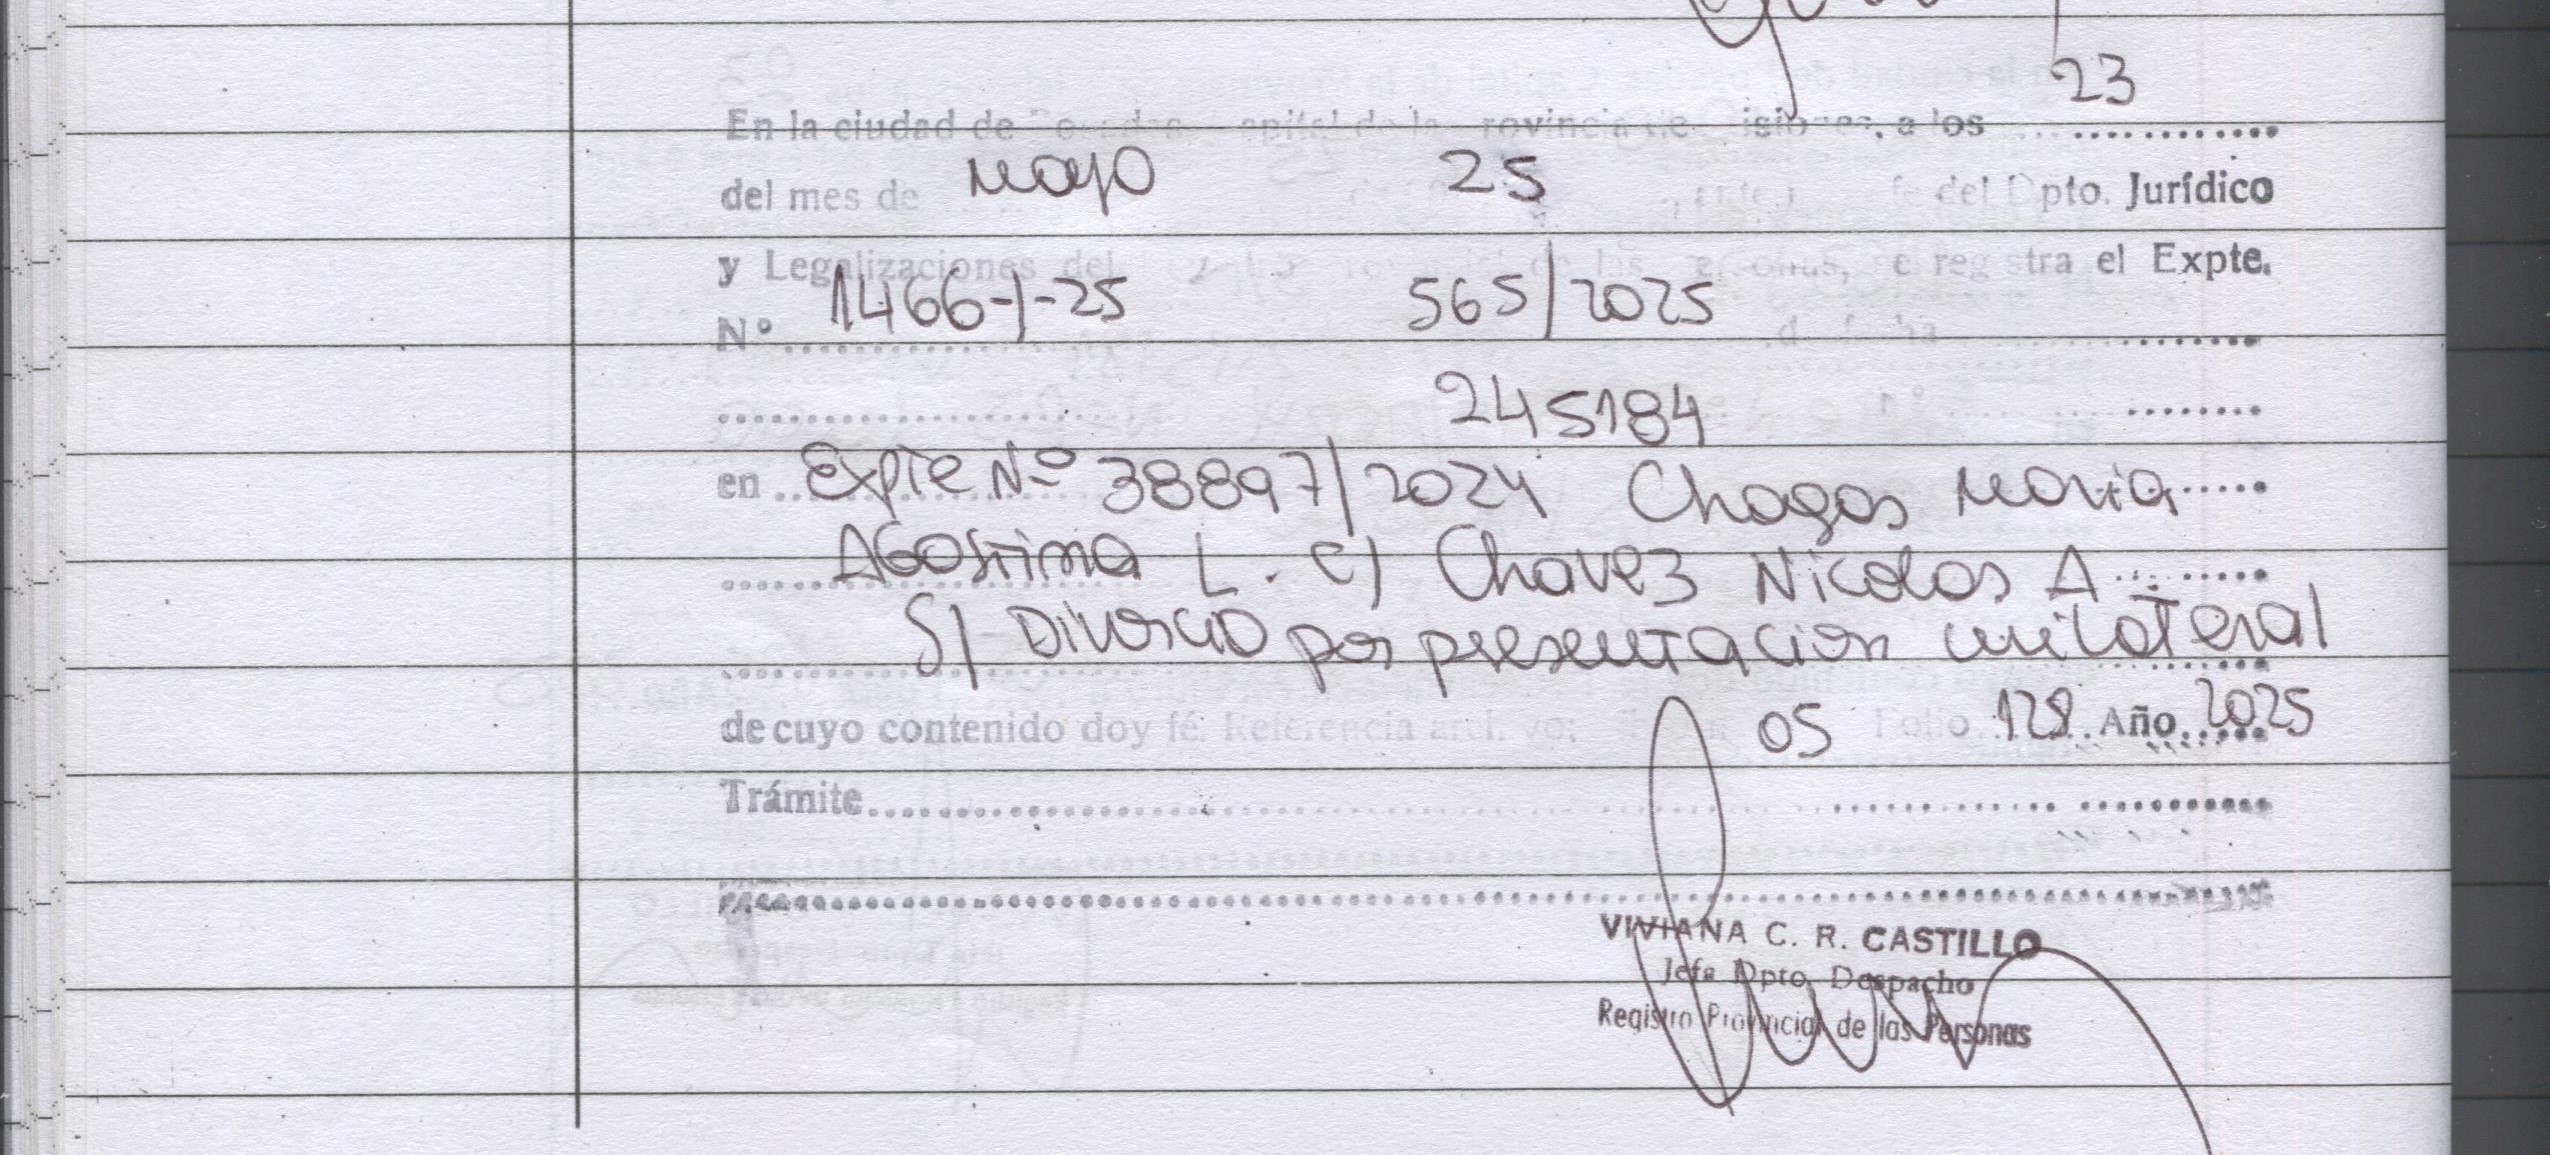 23
En la ciudad de Posadas, capital de la provincia de Misiones, a los ............
del mes de mayo 25 del Dpto. Jurídico
y Legalizaciones del de las personas, se registra el Expte.
Nº 1466-J-25 565/2025 de fecha
245184
en Expte Nº 38897/2024 Chagas Maria
Agostina L. c/ Chavez Nicolas A
S/ Divorcio por presentacion unilateral
de cuyo contenido doy fé. Referencia archivo: 05 Folio 128 Año 2025
Trámite
VIVIANA C. R. CASTILLO
Jefa Dpto. Despacho
Registro Provincial de las Personas